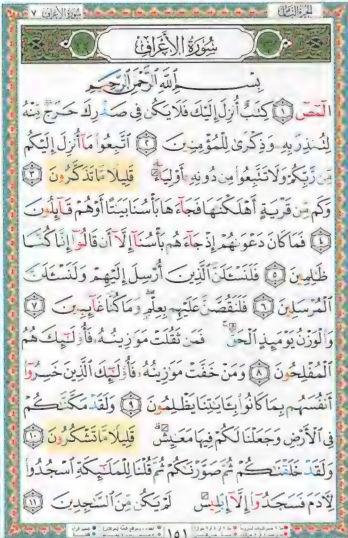 الجزء الثامن
سورة الأعراف ٧
سُورَةُ الأَعْرَافِ
بِسْمِ اللَّهِ الرَّحْمَٰنِ الرَّحِيمِ
الٓمٓصٓ ١ كِتَٰبٌ أُنزِلَ إِلَيْكَ فَلَا يَكُن فِى صَدْرِكَ حَرَجٌ مِّنْهُ
لِتُنذِرَ بِهِۦ وَذِكْرَىٰ لِلْمُؤْمِنِينَ ٢ ٱتَّبِعُوا۟ مَآ أُنزِلَ إِلَيْكُم
مِّن رَّبِّكُمْ وَلَا تَتَّبِعُوا۟ مِن دُونِهِۦٓ أَوْلِيَآءَ ۗ قَلِيلًا مَّا تَذَكَّرُونَ ٣
وَكَم مِّن قَرْيَةٍ أَهْلَكْنَٰهَا فَجَآءَهَا بَأْسُنَا بَيَٰتًا أَوْ هُمْ قَآئِلُونَ
٤ فَمَا كَانَ دَعْوَىٰهُمْ إِذْ جَآءَهُم بَأْسُنَآ إِلَّآ أَن قَالُوٓا۟ إِنَّا كُنَّا
ظَٰلِمِينَ ٥ فَلَنَسْـَٔلَنَّ ٱلَّذِينَ أُرْسِلَ إِلَيْهِمْ وَلَنَسْـَٔلَنَّ
ٱلْمُرْسَلِينَ ٦ فَلَنَقُصَّنَّ عَلَيْهِم بِعِلْمٍ ۖ وَمَا كُنَّا غَآئِبِينَ ٧
وَٱلْوَزْنُ يَوْمَئِذٍ ٱلْحَقُّ ۚ فَمَن ثَقُلَتْ مَوَٰزِينُهُۥ فَأُو۟لَٰٓئِكَ هُمُ
ٱلْمُفْلِحُونَ ٨ وَمَنْ خَفَّتْ مَوَٰزِينُهُۥ فَأُو۟لَٰٓئِكَ ٱلَّذِينَ خَسِرُوٓا۟
أَنفُسَهُم بِمَا كَانُوا۟ بِـَٔايَٰتِنَا يَظْلِمُونَ ٩ وَلَقَدْ مَكَّنَّٰكُمْ
فِى ٱلْأَرْضِ وَجَعَلْنَا لَكُمْ فِيهَا مَعَٰيِشَ ۗ قَلِيلًا مَّا تَشْكُرُونَ ١٠
وَلَقَدْ خَلَقْنَٰكُمْ ثُمَّ صَوَّرْنَٰكُمْ ثُمَّ قُلْنَا لِلْمَلَٰٓئِكَةِ ٱسْجُدُوا۟
لِـَٔادَمَ فَسَجَدُوٓا۟ إِلَّآ إِبْلِيسَ لَمْ يَكُن مِّنَ ٱلسَّٰجِدِينَ ١١
١٥١